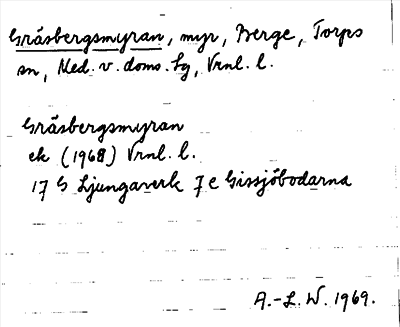 Gråsbergsmyran, myr, Berge, Torps
sn, Med. v. doms. sg, Vrnl. l.
Gråsbergsmyran
ek (1968) Vrnl. l.
17 G Ljungaverk 7 e Gissjöbodarna
A.-L. W. 1969.